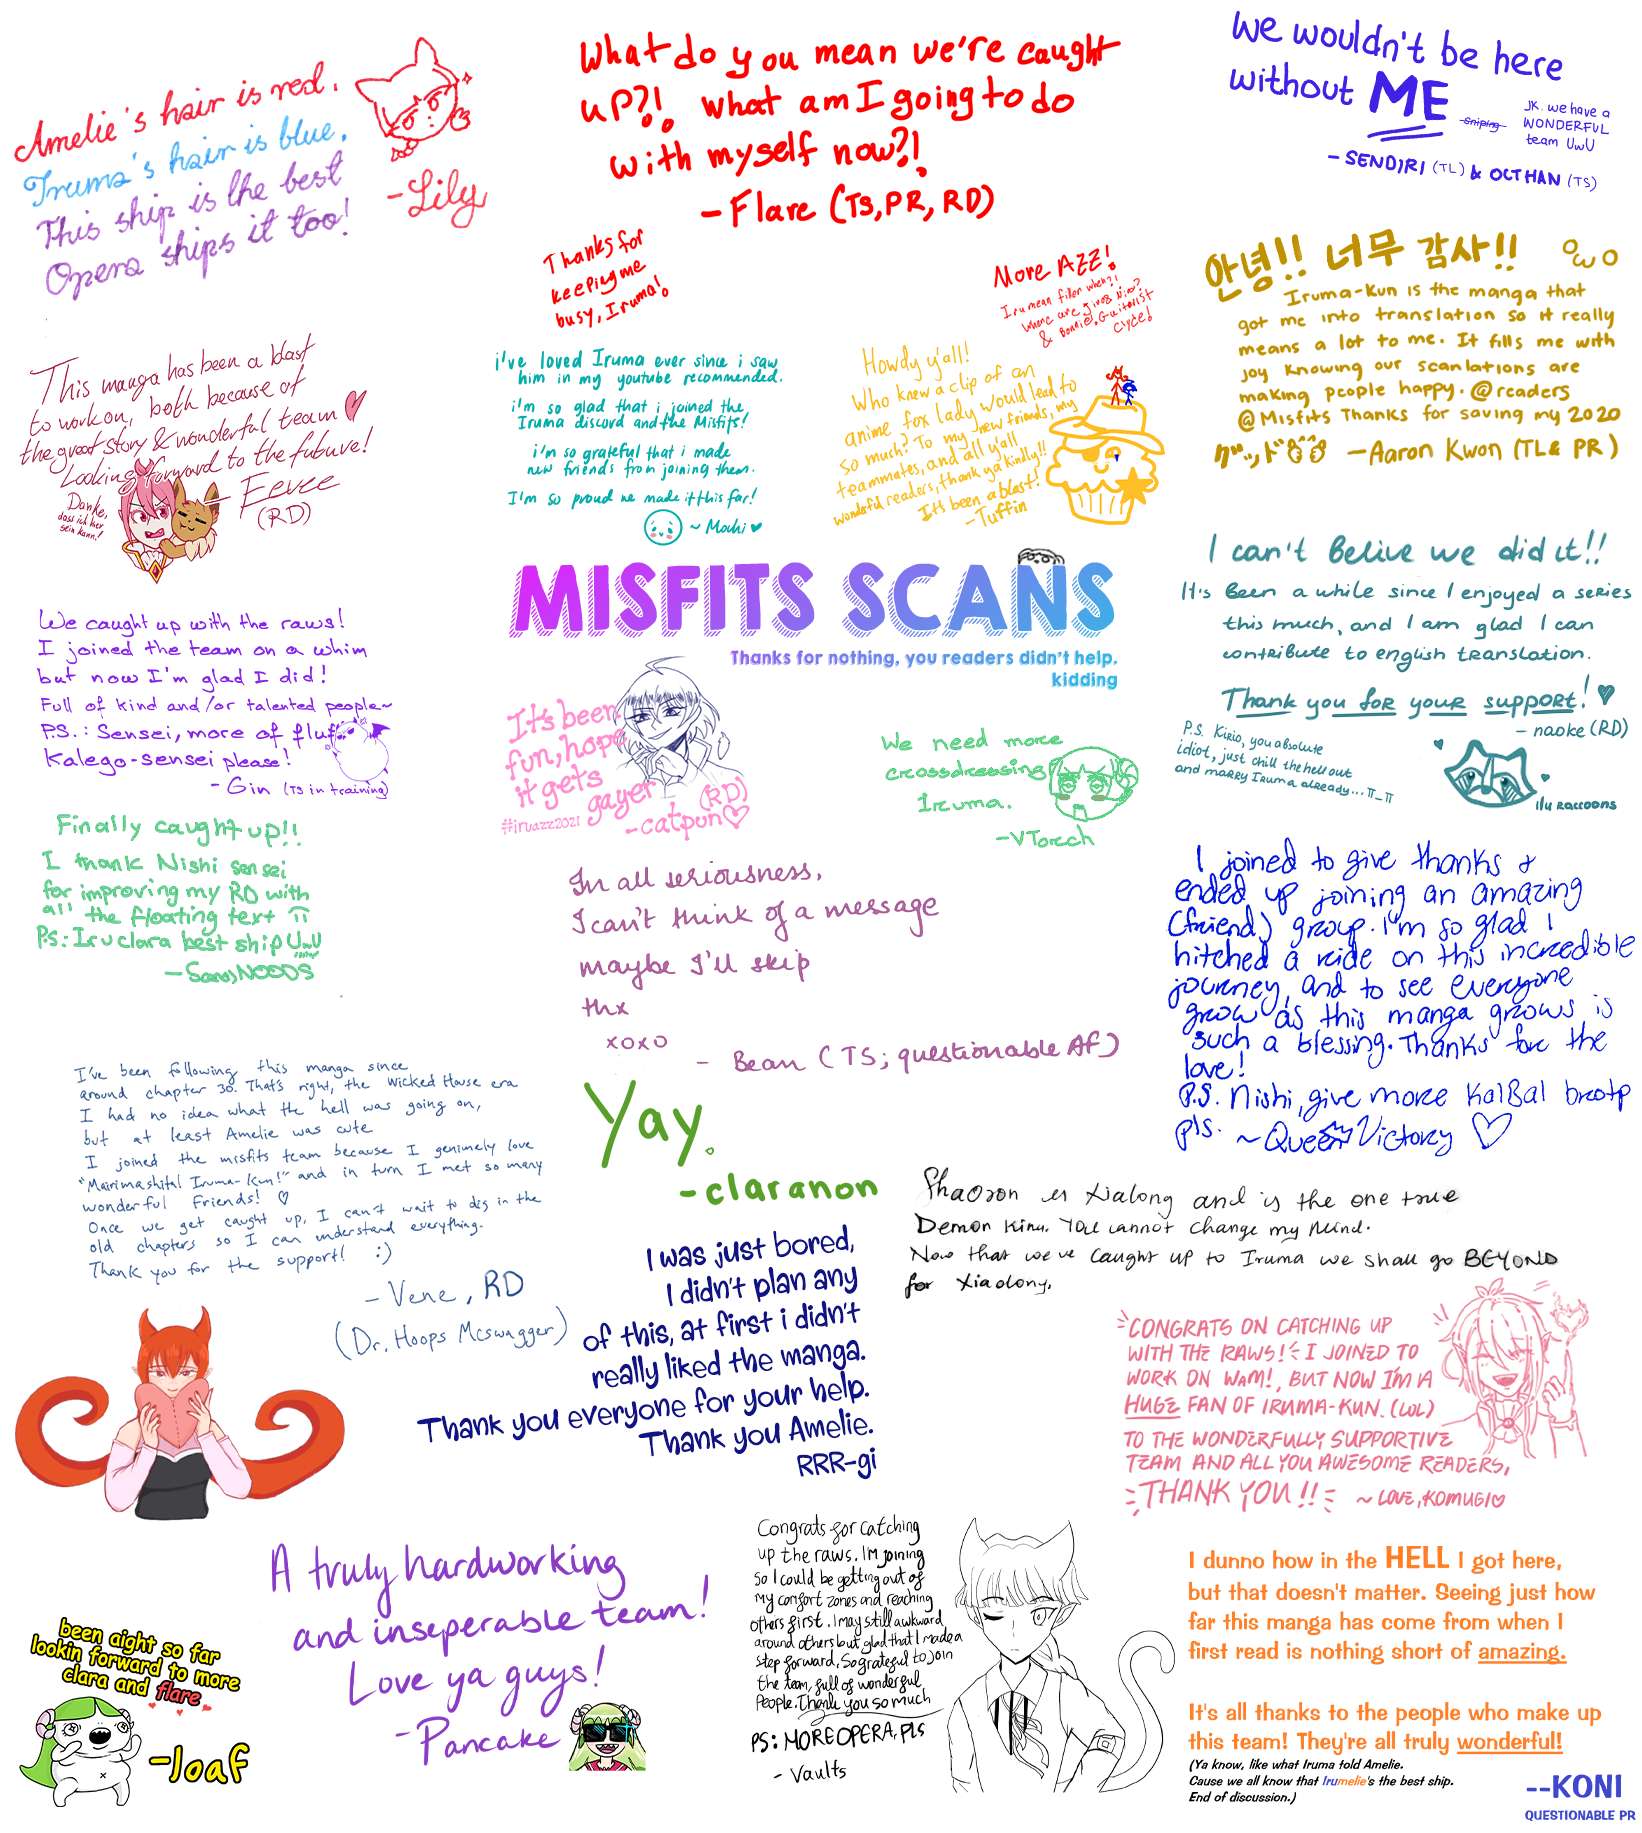 Amelie's hair is red.
Iruma's hair is blue.
This ship is the best
Opera ships it too!
-Lily
What do you mean we're caught
up?!  what am I going to do
with myself now?!
-Flare (TS, PR, RD)
We wouldn't be here
without ME
sniping
JK. we have a
WONDERFUL
team UwU
- SENDIRI (TL) & OCTHAN (TS)
Thanks for
keeping me
busy, Iruma!
More AZZ!
Iru mean filler when?!
Where are
& Bonnie, Guitarist
Clyde!
안녕!! 너무 감사!! OωO
Iruma-Kun is the manga that
got me into translation so it really
means a lot to me. It fills me with
joy knowing our scanlations are
making people happy. @readers
@Misfits Thanks for saving my 2020
—Aaron Kwon (TL & PR)
This manga has been a blast
to work on, both because of
the great story & wonderful team ♥
Looking forward to the future!
- Eevee
(RD)
Danke,
dass ich hier
sein kann!
i've loved Iruma ever since i saw
him in my youtube recommended.
i'm so glad that i joined the
Iruma discord and the Misfits!
i'm so grateful that i made
new friends from joining them.
I'm so proud we made it this far!
~ Mochi ♥
Howdy y'all!
Who knew a clip of an
anime fox lady would lead to
so much? To my new friends, my
teammates, and all y'all
wonderful readers, thank ya kindly!!
It's been a blast!
-Tuffin
MISFITS SCANS
Thanks for nothing, you readers didn't help.
kidding
I can't Belive we did it!!
It's Been a while since I enjoyed a series
this much, and I am glad I can
contribute to english translation.
Thank you for your support! ♥
- naoke (RD)
P.S. Kirio, you absolute
idiot, just chill the hell out
and marry Iruma already... π_π
ily raccoons
We caught up with the raws!
I joined the team on a whim
but now I'm glad I did!
Full of kind and/or talented people~
P.S.: Sensei, more of fluff
Kalego-sensei please!
- Gin (TS in training)
It's been
fun, hope
it gets
gayer
#iruazz2021
(RD)
-catpun♡
We need more
crossdressing
Iruma.
-VTorch
Finally caught up!!
I thank Nishi sensei
for improving my RD with
all the floating text π
P.S: Iruclara best ship UwU
—SansyNOODS
In all seriousness,
I can't think of a message
maybe I'll skip
thx
xoxo
- Bean (TS; questionable AF)
I joined to give thanks &
ended up joining an amazing
(friend) group. I'm so glad I
hitched a ride on this incredible
journey, and to see everyone
grow as this manga grows is
such a blessing. Thanks for the
love!
P.S. Nishi, give more KalBal brotp
pls.
~Queen Victory ♡
I've been following this manga since
around chapter 30. That's right, the Wicked House era
I had no idea what the hell was going on,
but at least Amelie was cute
I joined the misfits team because I genuinely love
"Mairimashita! Iruma-Kun!" and in turn I met so many
wonderful Friends! ♡
Once we get caught up, I can't wait to dig in the
old chapters so I can understand everything.
Thank you for the support! :)
- Vene, RD
(Dr. Hoops McSwagger)
Yay.
-claranon
Shaoron is Xialong and is the one true
Demon King. You cannot change my mind.
Now that we've caught up to Iruma we shall go BEYOND
for Xiaolong.
I was just bored,
I didn't plan any
of this, at first i didn't
really liked the manga.
Thank you everyone for your help.
Thank you Amelie.
RRR-gi
CONGRATS ON CATCHING UP
WITH THE RAWS! I JOINED TO
WORK ON WAM!, BUT NOW I'M A
HUGE FAN OF IRUMA-KUN. (LOL)
TO THE WONDERFULLY SUPPORTIVE
TEAM AND ALL YOU AWESOME READERS,
THANK YOU!!
~ LOVE, KOMUGI♡
A truly hardworking
and inseperable team!
Love ya guys!
-Pancake
Congrats for catching
up the raws. I'm joining
so I could be getting out of
my comfort zones and reaching
others first. I may still awkward
around others but glad that I made a
step forward, So grateful to join
the team, full of wonderful
people. Thank you so much
PS: MORE OPERA, PLS
- Vaults
I dunno how in the HELL I got here,
but that doesn't matter. Seeing just how
far this manga has come from when I
first read is nothing short of amazing.
It's all thanks to the people who make up
this team! They're all truly wonderful!
(Ya know, like what Iruma told Amelie.
Cause we all know that Irumelie's the best ship.
End of discussion.)
--KONI
QUESTIONABLE PR
been aight so far
lookin forward to more
clara and flare
-loaf